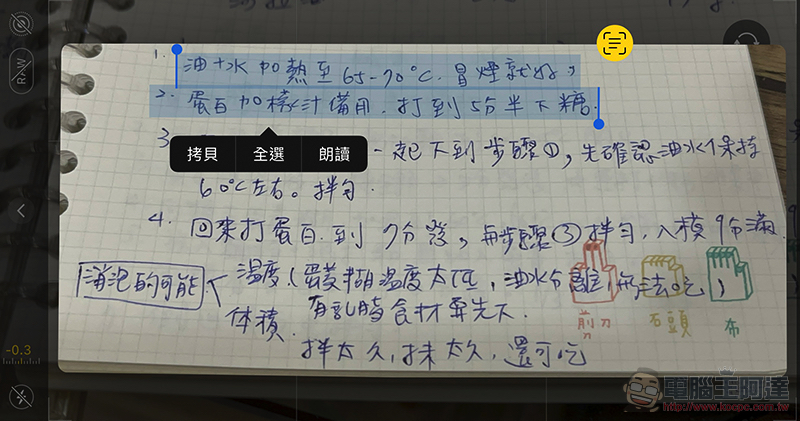 1. 油+水加熱至65-70°C.冒煙就好,
2. 蛋白加檸汁備用.打到5分半下糖.
拷貝 全選 朗讀
3. 一起下到步驟①,先確認油水保持
60°C左右。拌勻.
4. 回來打蛋白.到7分發,再步驟③拌勻,入模9分滿.
消泡的可能
溫度(蛋黃糊溫度太低,油水分離,無法吃,
有乳脂食材要先下.
體積.
拌太久,抹太久,還可吃
剪刀
石頭
布
RAW
-0.3
電腦王阿達
http://www.kocpc.com.tw